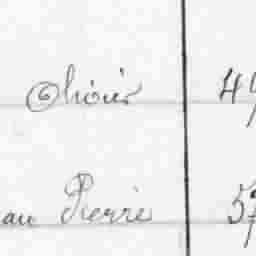 Olivier 47
au Pierre 57